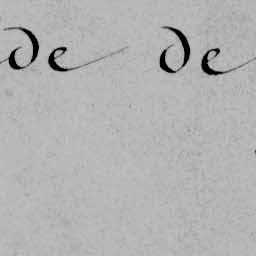 de de